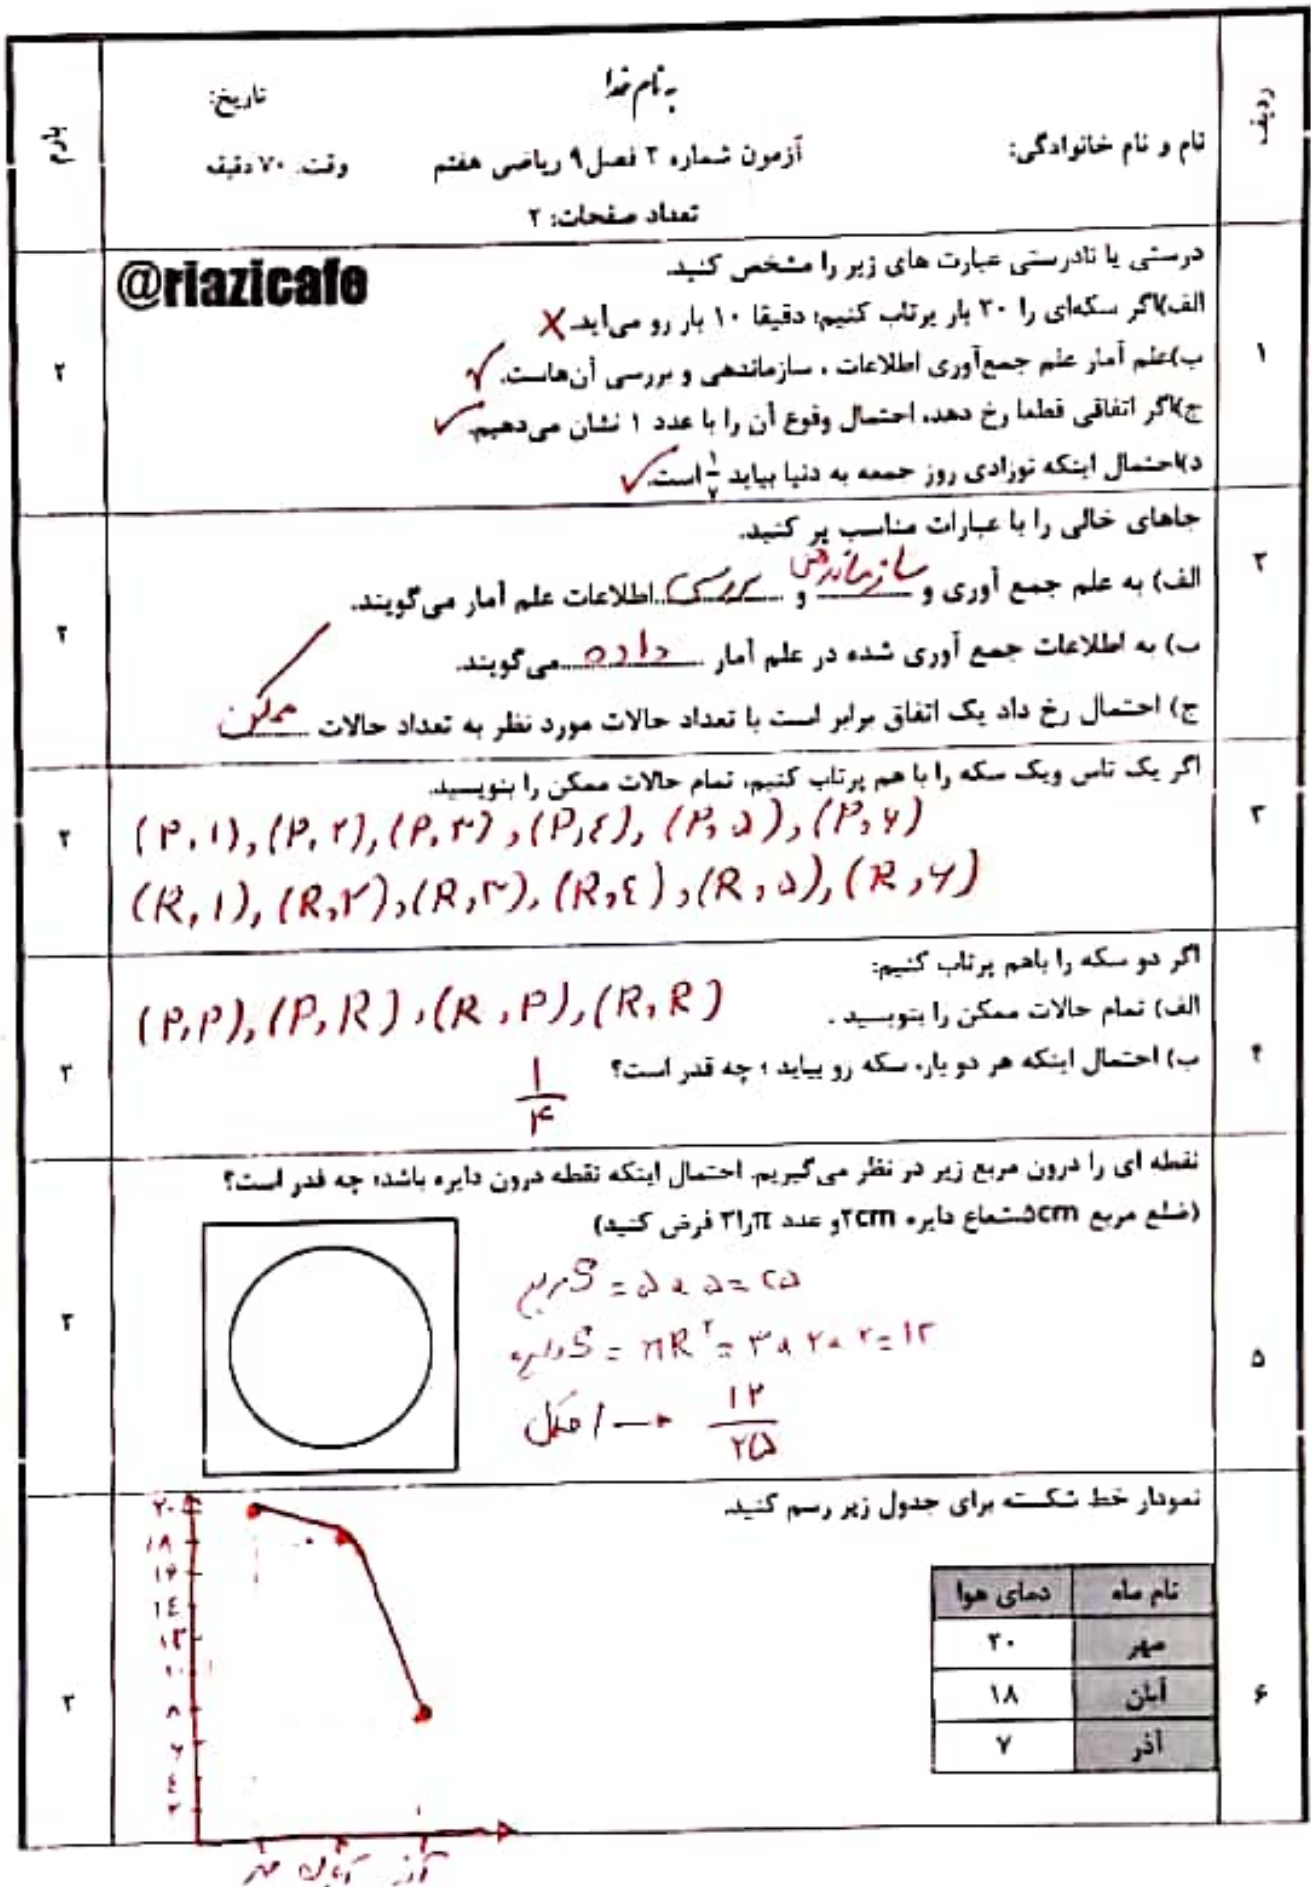 ردیف
به نام خدا
نام و نام خانوادگی:
آزمون شماره ۲ فصل ۹ ریاضی هفتم
تاریخ:
وقت: ۷۰ دقیقه
تعداد صفحات: ۲
بارم
@riazicafe
۱
درستی یا نادرستی عبارت های زیر را مشخص کنید.
الف)اگر سکه‌ای را ۲۰ بار پرتاب کنیم؛ دقیقا ۱۰ بار رو می‌آید. ✗
ب)علم آمار علم جمع‌آوری اطلاعات ، سازماندهی و بررسی آن‌هاست. ✓
ج)اگر اتفاقی قطعا رخ دهد، احتمال وقوع آن را با عدد ۱ نشان می‌دهیم. ✓
د)احتمال اینکه نوزادی روز جمعه به دنیا بیاید ۱/۷ است. ✓
۲
۲
جاهای خالی را با عبارات مناسب پر کنید.
الف) به علم جمع آوری و سازماندهی و بررسی اطلاعات علم آمار می‌گویند.
ب) به اطلاعات جمع آوری شده در علم آمار داده می‌گویند.
ج) احتمال رخ داد یک اتفاق برابر است با تعداد حالات مورد نظر به تعداد حالات ممکن
۲
۳
اگر یک تاس ویک سکه را با هم پرتاب کنیم، تمام حالات ممکن را بنویسید.
(P,۱),(P,۲),(P,۳),(P,٤),(P,۵),(P,۶)
(R,۱),(R,۲),(R,۳),(R,٤),(R,۵),(R,۶)
۲
۴
اگر دو سکه را باهم پرتاب کنیم:
الف) تمام حالات ممکن را بنویسید .
(P,P),(P,R),(R,P),(R,R)
ب) احتمال اینکه هر دو بار، سکه رو بیاید ؛ چه قدر است؟
۱/۴
۳
۵
نقطه ای را درون مربع زیر در نظر می‌گیریم. احتمال اینکه نقطه درون دایره باشد؛ چه قدر است؟
(ضلع مربع ۵cm شعاع دایره ۲cm و عدد π را ۳ فرض کنید)
مربع S = ۵ × ۵ = ۲۵
دایره S = πR² = ۳ × ۲ × ۲ = ۱۲
احتمال → ۱۲/۲۵
۳
۶
نمودار خط شکسته برای جدول زیر رسم کنید.
نام ماه دمای هوا
مهر ۲۰
آبان ۱۸
آذر ۷
۲۰
۱۸
۱۶
۱٤
۱۲
۱۰
۸
۶
٤
۲
مهر آبان آذر